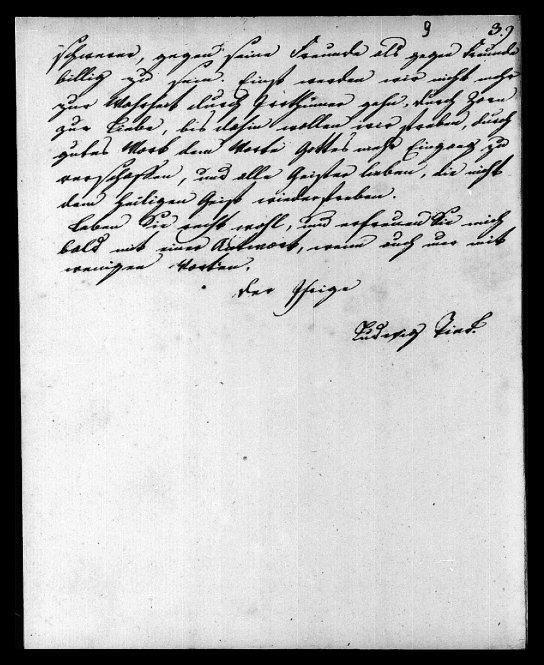 9 3.)
schwerer, gegen seine Freunde als gegen Feinde
billig zu sein. Einst werden wir nicht mehr
zur Wahrheit durch Irrthümer gehn, durch Zorn
zur Liebe, bis dahin wollen wir streben, durch
gutes Wort dem Worte Gottes mehr Eingang zu
verschaffen, und alle Geister lieben, die nicht
dem heiligen Geist widerstreben.
Leben Sie recht wohl, und erfreuen Sie mich
bald mit einer Antwort, wenn auch nur mit
wenigen Worten.
Der Ihrige
Ludwig Tieck.